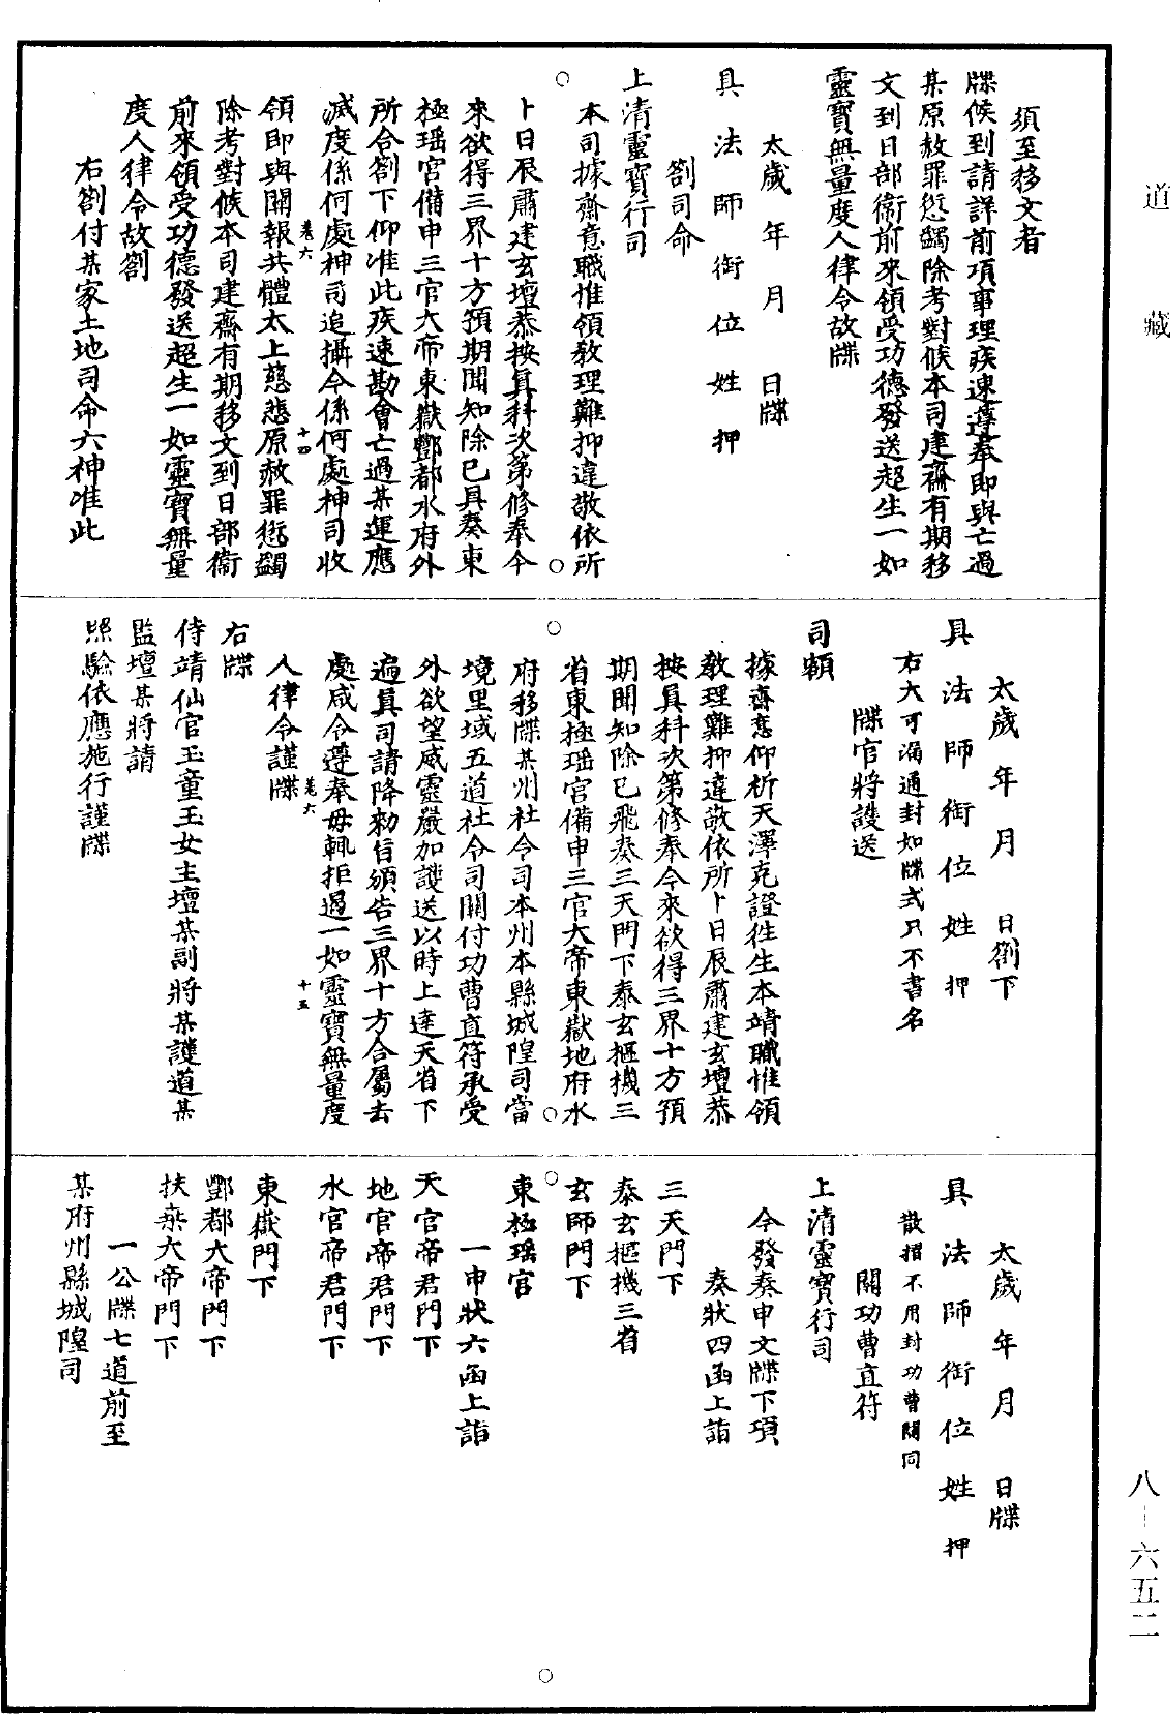 道藏
須至移文者
牒候到請詳前項事理疾速遵奉即與亡過
某原赦罪愆蠲除考對候本司建齋有期移
文到日部衛前來領受功德發送超生一如
靈寶無量度人律令故牒
太歲 年 月 日牒
具法師銜位姓押
劄司命
上清靈寶行司
本司據齋意職惟領教理難抑違敬依所
卜日辰肅建玄壇恭按眞科次第修奉今
來欲得三界十方預期聞知除已具奏東
極瑶宮備申三官大帝東嶽酆都水府外
所合劄下仰准此疾速勘會亡過某運應
滅度係何處神司追攝今係何處神司收
卷六 十四
領即與關報共體太上慈悲原赦罪愆蠲
除考對候本司建齋有期移文到日部衛
前來領受功德發送超生一如靈寶無量
度人律令故劄
右劄付某家土地司命六神准此
太歲 年 月 日劄下
具法師銜位姓押
右大可漏通封如牒式只不書名
牒官將護送
司額
據齋意仰析天澤克證往生本靖職惟領
教理難抑違敬依所卜日辰肅建玄壇恭
按眞科次第修奉今來欲得三界十方預
期聞知除已飛奏三天門下泰玄樞機三
省東極瑶宮備申三官大帝東嶽地府水
府移牒某州社令司本州本縣城隍司當
境里域五道社令司關付功曹直符承受
外欲望威靈嚴加護送以時上達天省下
遍眞司請降勑旨頒告三界十方合屬去
處咸令遵奉毋輒拒遏一如靈寶無量度
卷六 十五
人律令謹牒
右牒
侍靖仙官玉童玉女主壇某副將某護道某
監壇某將請
照驗依應施行謹牒
太歲 年 月 日牒
具法師銜位姓押
散摺不用封功曹關同
關功曹直符
上清靈寶行司
今發奏申文牒下項
奏狀四函上詣
三天門下
泰玄樞機三省
玄師門下
東極瑶宮
一申狀六函上詣
天官帝君門下
地官帝君門下
水官帝君門下
東嶽門下
酆都大帝門下
扶桑大帝門下
一公牒七道前至
某府州縣城隍司
八-六五二